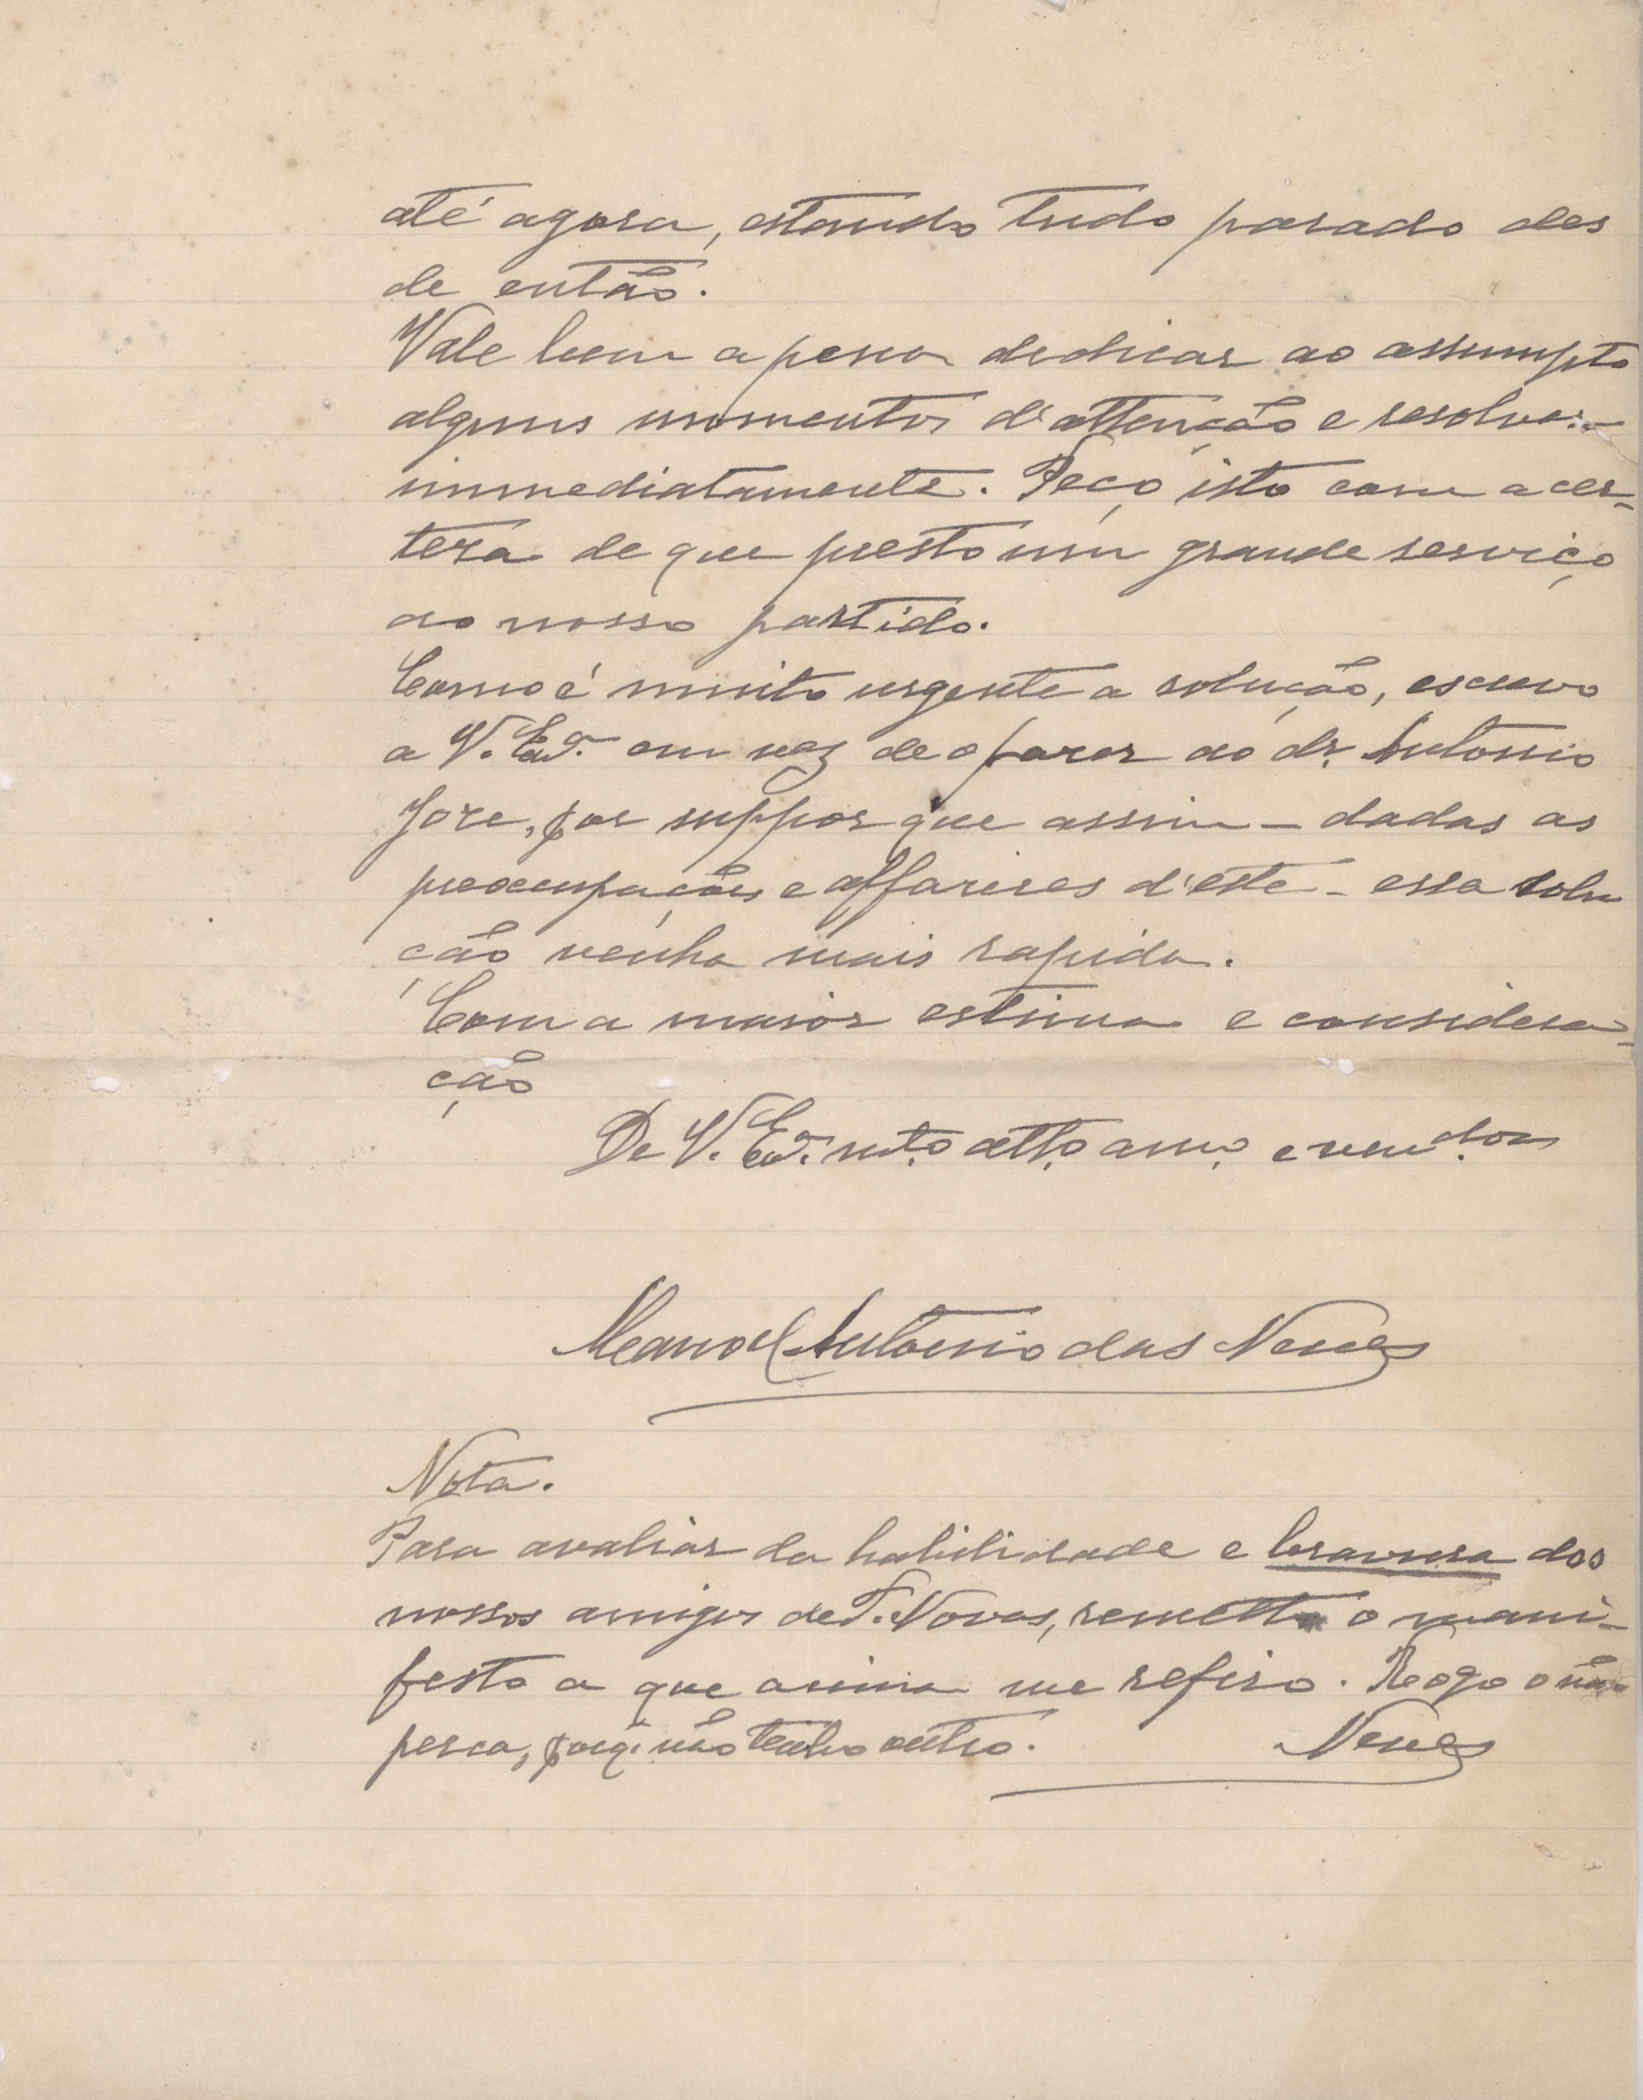 até agora, estando tudo parado des
de então.
Vale bem a pena dedicar ao assumpto
alguns momentos d'attenção e resolver-
immediatamente. Peço isto com a cer-
teza de que presto um grande serviço
ao nosso partido.
Como é muito urgente a solução, escrevo
a V. Exª. em vez de o fazer ao dr. Antonio
José, por suppor que assim - dadas as
preocupações e affazeres d'este - essa solu
ção venha mais rapida.
Com a maior estima e considera-
ção
De V. Exª. mto. atto. amo. e vendor
Manoel Antonio das Neves
Nota.
Para avaliar da habilidade e bravura dos
nossos amigos de T. Novas, remetto o mani-
festo a que acima me refiro. Rogo o não
perca, porq. não tenho outro. Neves